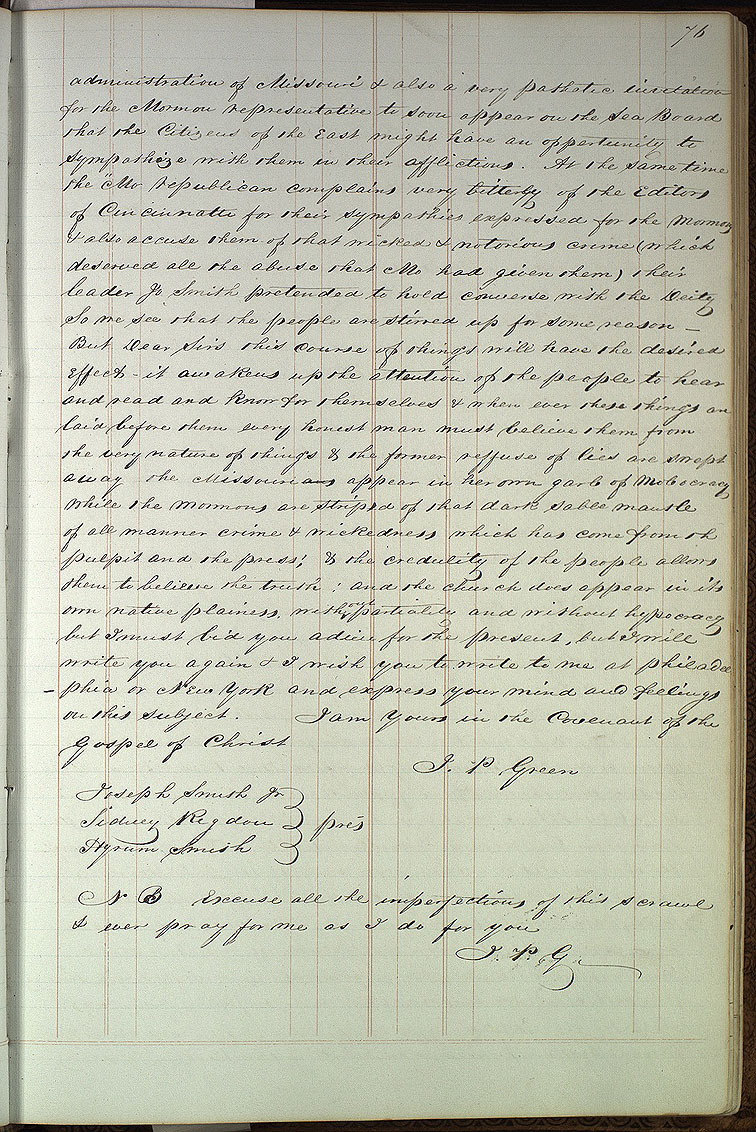 76
administration of Missouri & also a very pathetic invitation
for the Mormon representative to soon appear on the Sea Board
that the Citizens of the East might have an opportunity to
sympathize with them in their afflictions. At the same time
the "Mo republican complains very bitterly of the Editors
of Cincinnatti for their sympathies expressed for the Mormons
& also accuse them of that wicked & notorious crime (which
deserved all the abuse that Mo had given them) their
leader Jo. Smith pretended to hold converse with the Deity
So we see that the people are stirred up for some reason —
But Dear Sirs this course of things will have the desired
Effect - it awakens up the attention of the people to hear
and read and know for themselves & when ever these things are
laid before them every honest man must believe them from
the very nature of things & the former reffuse of lies are swept
away the Missourians appear in her own garb of Mobocracy
while the Mormons are striped of that dark sable mantle
of all manner crime & wickedness which has come from th
pulpit and the press; & the credulity of the people allows
them to believe the truth; and the church does appear in its
own native plainess. without partiality and without hypocracy
but I must bid you adieu for the present, but I will
write you again & I wish you to write to me at philadel
-phia or New York and express your mind and feelings
on this subject. I am Yours in the Covenant of the
Gospel of Christ
J. P. Green
Joseph Smith Jr.
Sidney Rigdon } pres
Hyrum Smith
N B Excuse all the imperfections of this scrawl
& ever pray for me as I do for you
J. P. G.